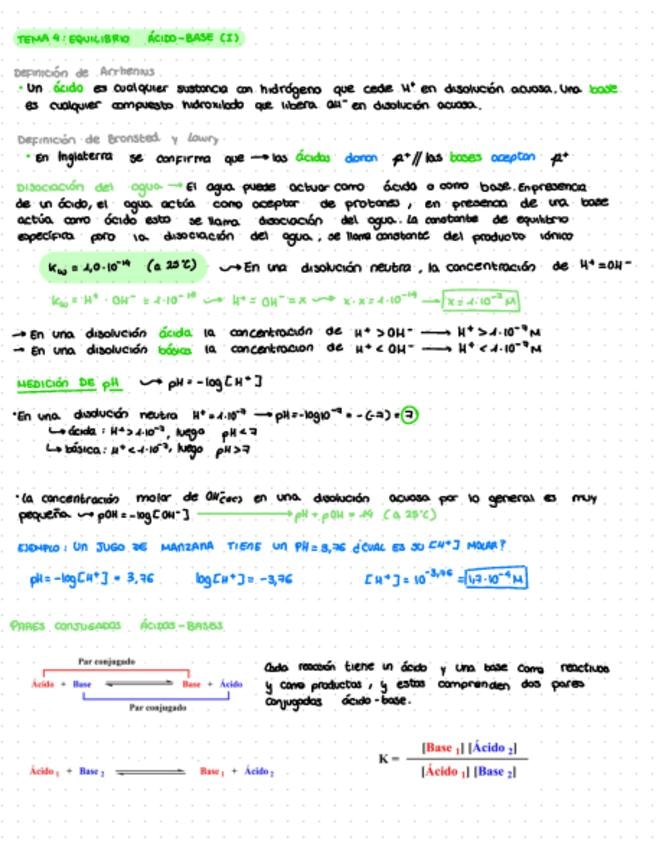 TEMA 4: EQUILIBRIO ÁCIDO-BASE (I)
Definición de Arrhenius
· Un ácido es cualquier sustancia con hidrógeno que cede H⁺ en disolución acuosa. Una base
es cualquier compuesto hidroxilado que libera OH⁻ en disolución acuosa.
Definición de Bronsted y Lowry
· En Inglaterra se confirma que → los ácidos donan H⁺ // las bases aceptan H⁺
Disociación del agua → El agua puede actuar como ácido o como base. En presencia
de un ácido, el agua actúa como aceptor de protones, en presencia de una base
actúa como ácido esto se llama disociación del agua. La constante de equilibrio
específica para la disociación del agua, se llama constante del producto iónico
Kw = 1,0·10⁻¹⁴ (a 25°C) → En una disolución neutra, la concentración de H⁺ = OH⁻
Kw = H⁺ · OH⁻ = 1·10⁻¹⁴ → H⁺ = OH⁻ = x → x·x = 1·10⁻¹⁴ → x = 1·10⁻⁷ M
→ En una disolución ácida la concentración de H⁺ > OH⁻ → H⁺ > 1·10⁻⁷ M
→ En una disolución básica la concentracion de H⁺ < OH⁻ → H⁺ < 1·10⁻⁷ M
MEDICIÓN DE pH → pH = -log[H⁺]
· En una disolución neutra H⁺ = 1·10⁻⁷ → pH = -log10⁻⁷ = -(-7) = 7
↳ ácida: H⁺ > 1·10⁻⁷, luego pH < 7
↳ básica: H⁺ < 1·10⁻⁷, luego pH > 7
· La concentración molar de OH⁻(ac) en una disolución acuosa por lo general es muy
pequeña → pOH = -log[OH⁻] → pH + pOH = 14 (a 25°C)
EJEMPLO: UN JUGO DE MANZANA TIENE UN pH = 3,76 ¿CUAL ES SU [H⁺] MOLAR?
pH = -log[H⁺] = 3,76 log[H⁺] = -3,76 [H⁺] = 10⁻³,⁷⁶ = 1,7·10⁻⁴ M
PARES CONJUGADOS ÁCIDOS-BASES
Par conjugado
Ácido + Base Base + Ácido
Par conjugado
Cada reacción tiene un ácido y una base como reactivos
y como productos, y estos comprenden dos pares
conjugados ácido-base.
Ácido ₁ + Base ₂ Base ₁ + Ácido ₂
K = [Base ₁] [Ácido ₂]
[Ácido ₁] [Base ₂]